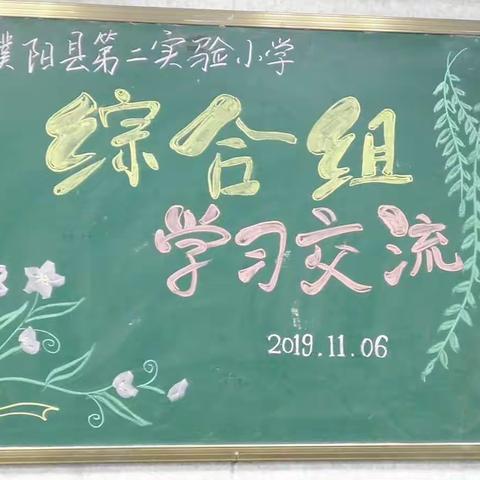 濮阳县第二实验小学
综合组
学习交流
2019.11.06